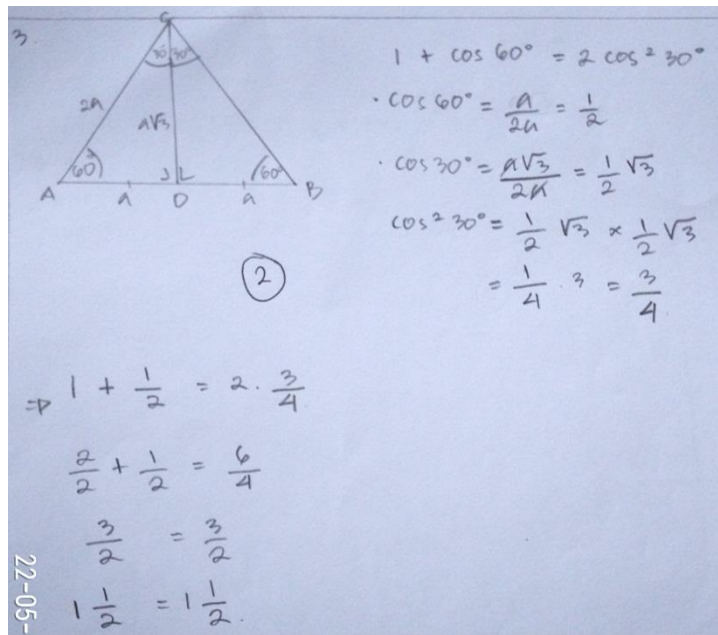 3.
C
30° 30°
2a
a√3
60° 60°
A a D a B
2
1 + cos 60° = 2 cos² 30°
· cos 60° = a/2a = 1/2
· cos 30° = a√3/2a = 1/2 √3
cos² 30° = 1/2 √3 × 1/2 √3
= 1/4 . 3 = 3/4
⇒ 1 + 1/2 = 2 . 3/4
2/2 + 1/2 = 6/4
3/2 = 3/2
1 1/2 = 1 1/2.
22-05-